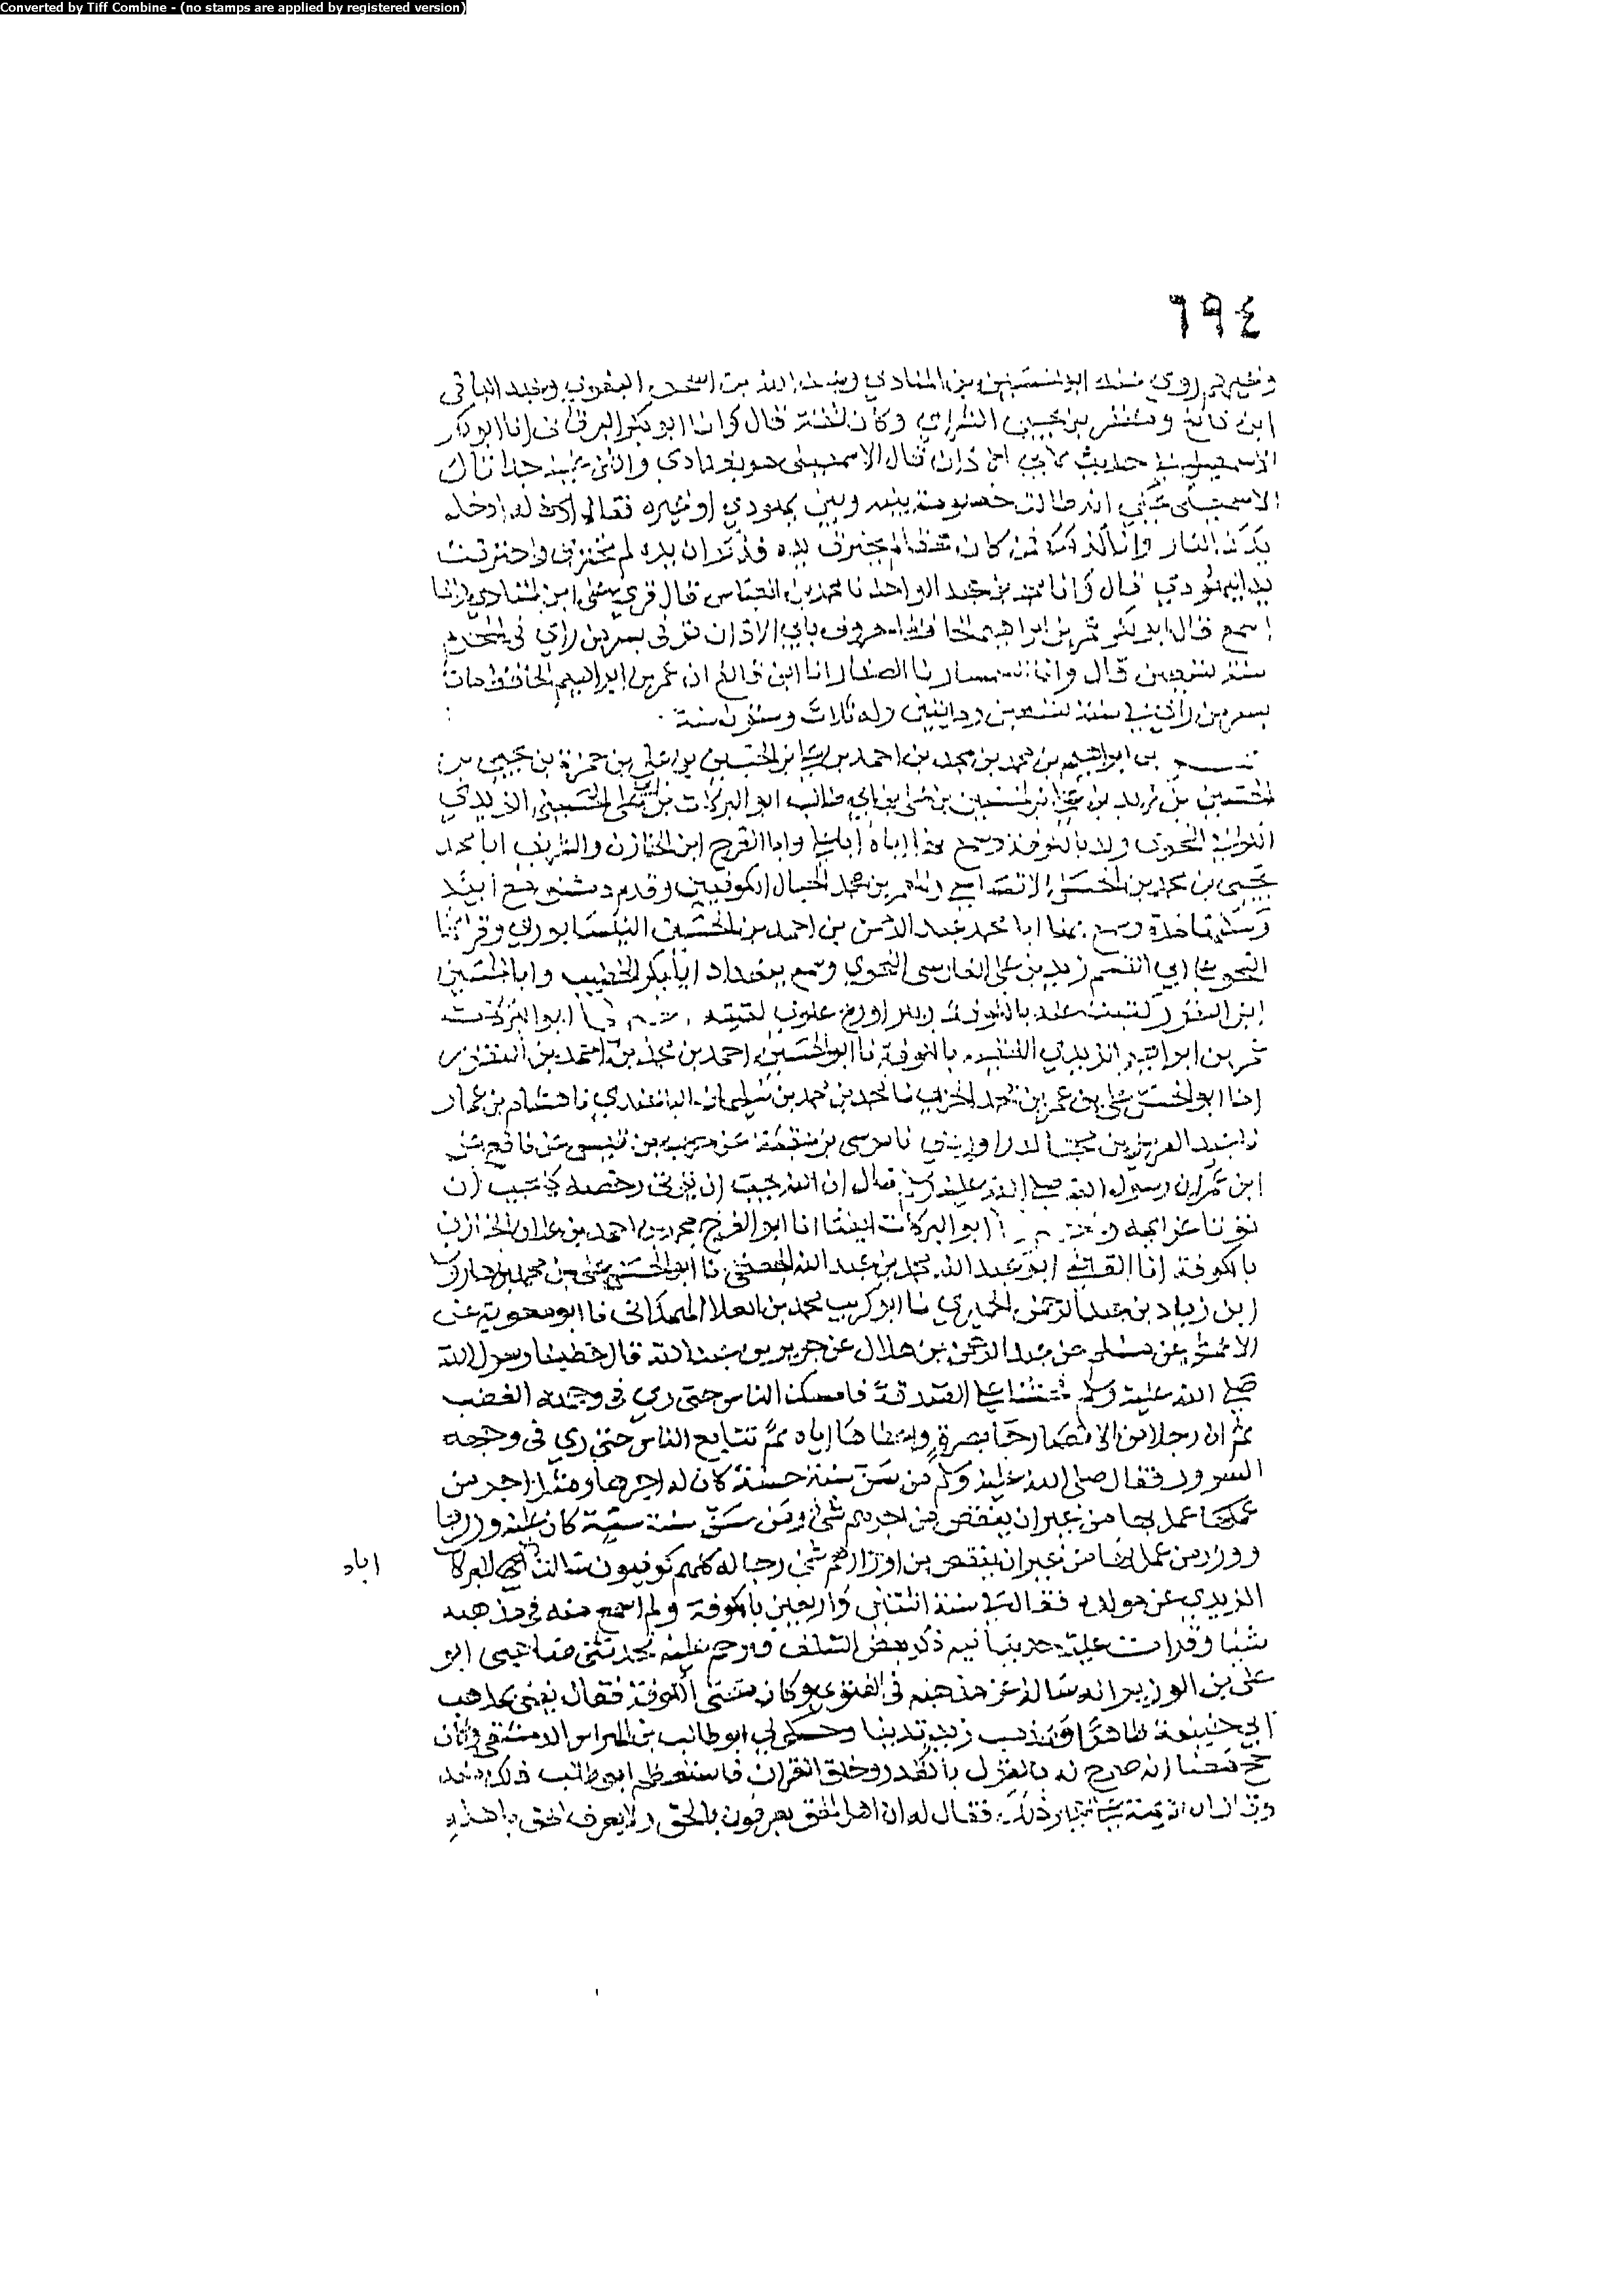 Converted by Tiff Combine - (no stamps are applied by registered version)
٦٩٤
وغيرهم روى عنه ابو الحسين بن المنادي وعبد الله بن اسحق البغوي وعبد الباقي
ابن قانع ومظفر بن يحيى الشرابي وكان ثقة قال وانا ابو بكر البرقاني انا ابو بكر
الاسمعيلي حديث ابي الاذان قال الاسمعيلي
الاسمعيلي حكي انه طالت خصومة بينه وبين يهودي او غيره فقال له ادخل
يدك النار وانا كذلك فمن كان محقا لم يحترق يده فذكر ان يده لم تحترق واحترقت
يد اليهودي قال وانا محمد بن عبد الواحد نا محمد بن العباس قال قرى على ابن المنادي وانا
اسمع قال ابو بكر عمر بن ابراهيم الحافظ المعروف بابي الاذان توفى بسر من راي في
سنة تسعين قال وانا السمسار نا الصفار انا ابن قانع ان عمر بن ابراهيم الحافظ مات
بسر من راي في سنة تسعين ومايتين وله ثلاث وستون سنة
عمر بن ابراهيم بن محمد بن محمد بن احمد بن علي بن الحسين بن علي بن حمزة بن يحيى بن
الحسين بن زيد بن علي بن الحسين بن علي بن ابي طالب ابو البركات بن ابي علي الحسيني الزيدي
النحوي ولد بالكوفة وسمع بها اباه ابا علي وابا الفرج ابن الخازن والشريف ابا محمد
يحيى بن محمد بن الحسن الاقساسي ومحمد الحبال الكوفيين وقدم دمشق مع ابيه
وسكنها مدة وسمع بها ابا محمد عبد الرحمن بن احمد بن الحسين النيسابوري وقرا بها
النحو على ابي القسم زيد بن علي الفارسي النحوي وسمع ببغداد ابا بكر الخطيب وابا الحسين
ابن النقور كتبت عنه بالكوفة وهو اورع علوي لقيته اخبرنا ابو البركات
عمر بن ابراهيم الزيدي الفقيه بالكوفة نا ابو الحسين احمد بن محمد بن احمد بن النقور
انا ابو الحسن علي بن عمر بن محمد الحربي نا محمد بن محمد بن سليمان الباغندي نا هشام بن عمار
نا عبد العزيز بن محمد الدراوردي نا موسى بن عقبة عن حرب بن قيس عن نافع عن
ابن عمر ان رسول الله صلى الله عليه وسلم قال ان الله يحب ان تؤتى رخصه كما يحب ان
تؤتا عزايمه واخبرنا ابو البركات ايضا انا ابو الفرج محمد بن احمد بن علان الخازن
بالكوفة انا القاضي ابو عبد الله محمد بن عبد الله الجعفي نا ابو الحسن علي بن محمد بن هارون
ابن زياد بن عبد الرحمن الحميري نا ابو كريب محمد بن العلا الهمداني نا ابو معوية عن
الاعمش عن مسلم عن عبد الرحمن بن هلال عن جرير بن عبد الله قال خطبنا رسول الله
صلى الله عليه وسلم فحثنا على الصدقة فامسك الناس حتى ري في وجهه الغضب
ثم ان رجلا من الانصار جا بصرة واعطاها اياه ثم تتابع الناس حتى ري في وجهه
السرور فقال صلى الله عليه وسلم من سن سنة حسنة كان له اجرها ومثل اجر من
عمل بها من غير ان ينقص من اجرهم شي ومن سن سنة سيئة كان عليه وزرها
ووزر من عمل بها من غير ان ينقص من اوزارهم شي رجاله كلهم كوفيون سالت ابا البركات
اباد
الزيدي عن مولده فقال في سنة اثنتين واربعين بالكوفة ولم اسمع منه في مذهبه
شيا وقرات عليه حديثا فيه ذكر بعض السلف فترحم عليه فحدثني صاحبي ابو
علي بن الوزير انه ساله عن مذهبه في الفتوى وكان مفتي الكوفة فقال يفتي بمذهب
ابي حنيفة ظاهرا وبمذهب زيد تدينا وحكى لي ابو طالب بن الهراس الدمشقي وكان
حج معنا انه صرح له بالقول بالقدر وخلق القران فاستعظم ابو طالب ذلك منه
وقال ان الايمة على غير ذلك فقال له ان اهل الحق يعرفون بالحق ولا يعرف الحق باهله